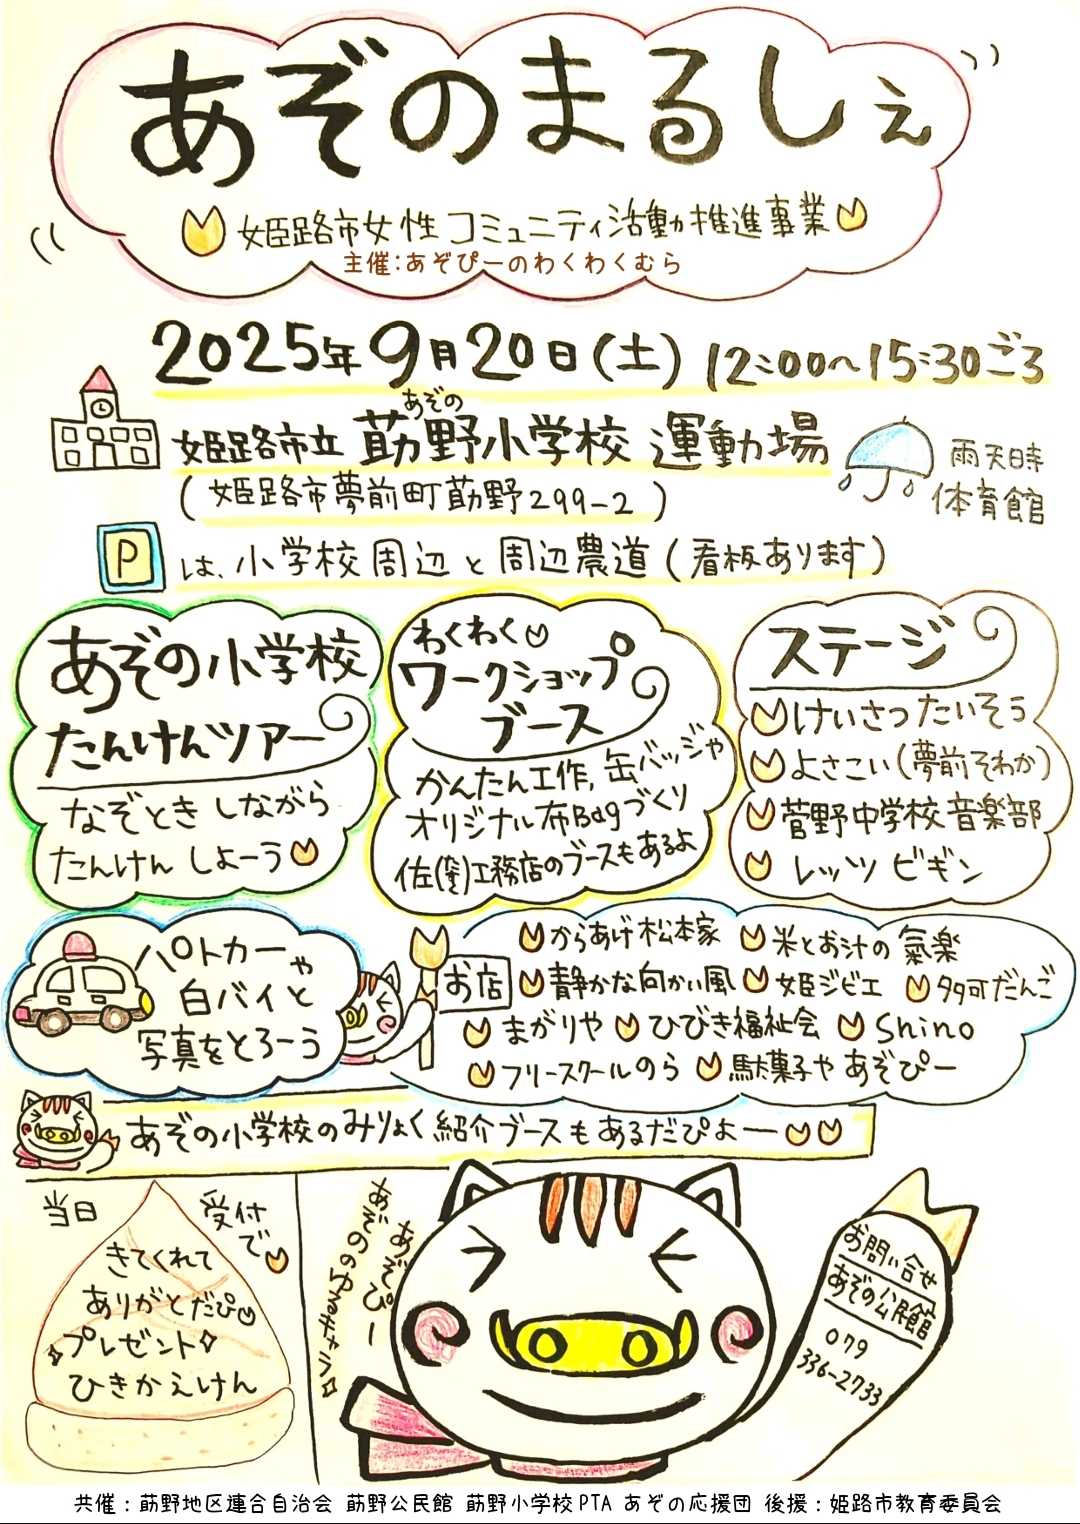 あぞのまるしぇ
姫路市女性コミュニティ活動推進事業
主催:あぞぴーのわくわくむら
2025年9月20日(土) 12:00〜15:30ごろ
あぞの
姫路市立 莇野小学校 運動場
(姫路市夢前町莇野299-2)
雨天時
体育館
P は、小学校周辺と周辺農道(看板あります)
あぞの小学校
たんけんツアー
なぞときしながら
たんけんしよーう
わくわく
ワークショップ
ブース
かんたん工作,缶バッジや
オリジナル布Bagづくり
工務店のブースもあるよ
ステージ
けいさつたいそう
よさこい(夢前そわか)
菅野中学校音楽部
レッツビギン
パトカーや
白バイと
写真をとろーう
お店
からあげ松本家 米とお汁の氣楽
静かな向かい風 姫ジビエ 多可だんご
まがりや ひびき福祉会 Shino
フリースクールのら 駄菓子やあぞぴー
あぞの小学校のみりょく紹介ブースもあるだぴよー
当日 受付で
きてくれて
ありがとだぴ
プレゼント
ひきかえけん
あぞののゆるキャラ
あぞぴー
お問い合せ
あぞの公民館
079
336-2733
共催：莇野地区連合自治会 莇野公民館 莇野小学校PTA あぞの応援団 後援：姫路市教育委員会